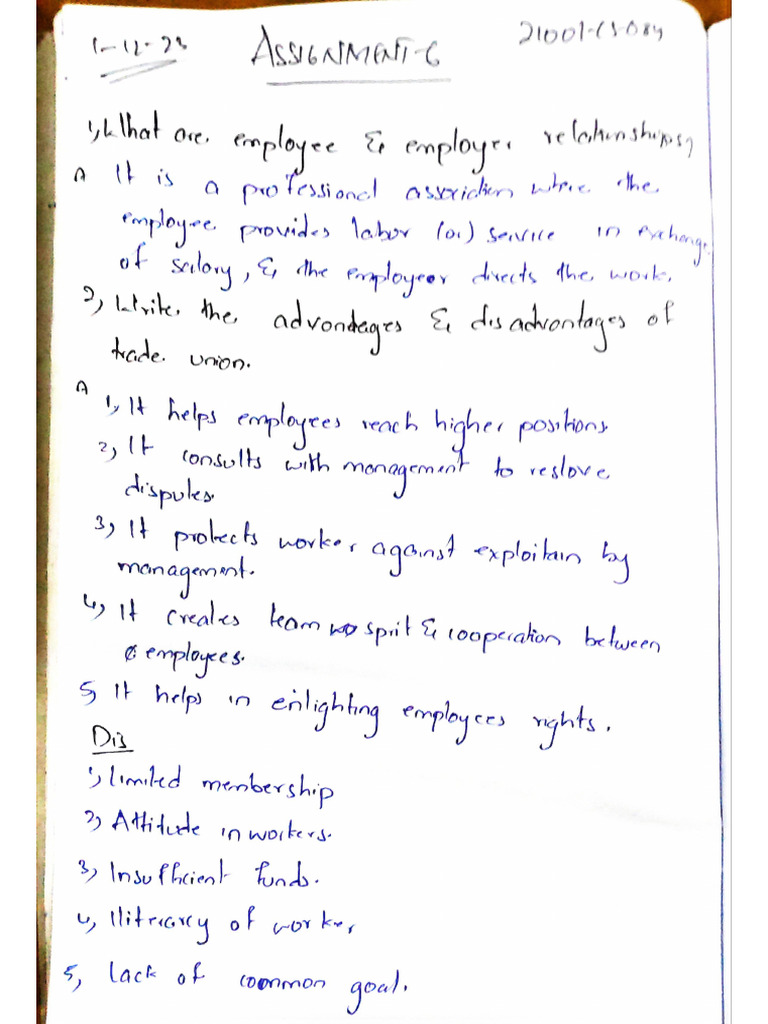 1-12-23 ASSIGNMENT-6 21001-CS-084
1, What are employee & employer relationships?
A It is a professional association where the
employee provides labor (or) service in exchange
of salary, & the employeer directs the work.
2, Write the advondages & disadvontages of
trade union.
A
1, It helps employees reach higher positions.
2, It consults with management to reslove
dispules.
3, It protects worker against exploitain by
management.
4, It creates team sprit & cooperation between
employees.
5, It helps in enlighting employees rights.
Dis
1, limited membership
2, Attitude in workers.
3, Insufficient funds.
4, Iliteracy of worker,
5, lack of common goal.